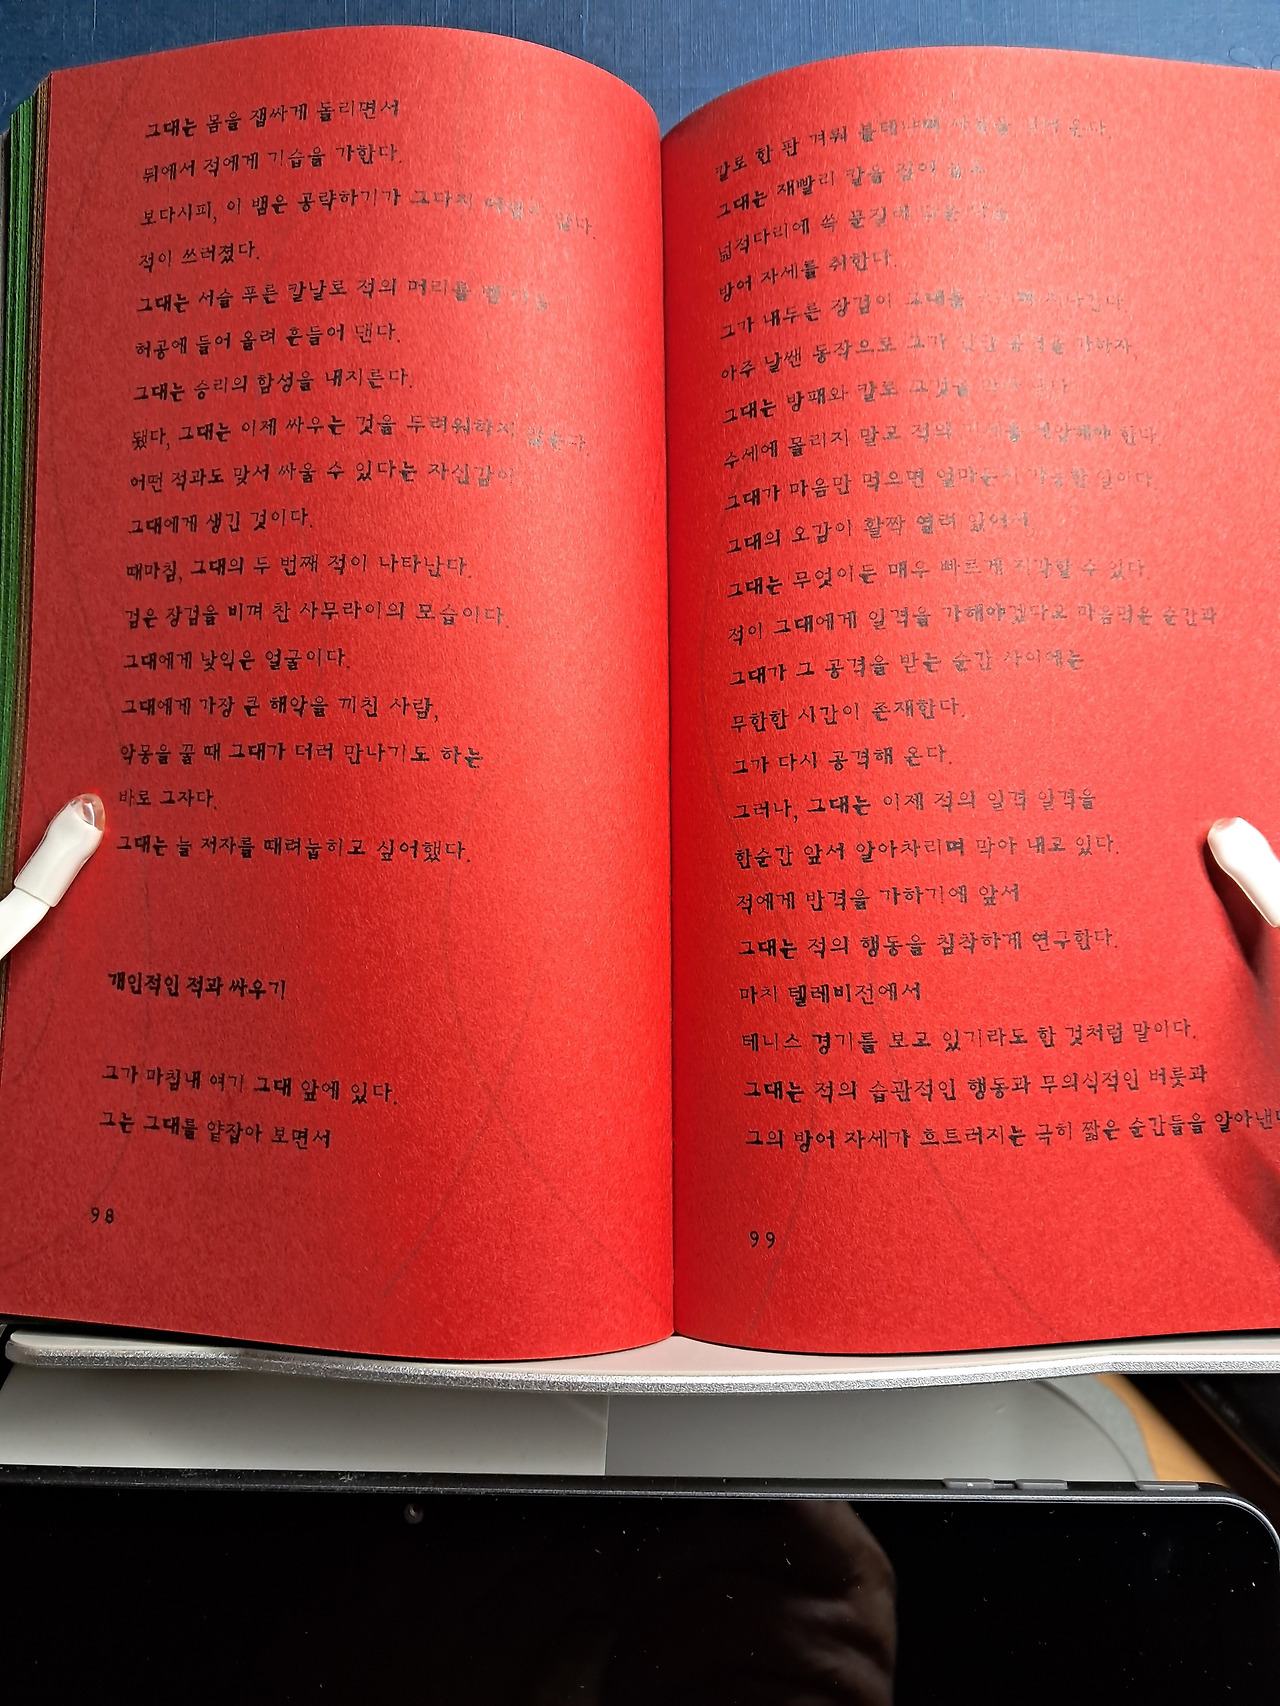 그대는 몸을 잽싸게 돌리면서
뒤에서 적에게 기습을 가한다.
보다시피, 이 뱀은 공략하기가 그다지 어렵지 않다.
적이 쓰러졌다.
그대는 서슬 푸른 칼날로 적의 머리를
허공에 들어 올려 흔들어 댄다.
그대는 승리의 함성을 내지른다.
됐다, 그대는 이제 싸우는 것을 두려워하지 않는다.
어떤 적과도 맞서 싸울 수 있다는 자신감이
그대에게 생긴 것이다.
때마침, 그대의 두 번째 적이 나타난다.
검은 장검을 비껴 찬 사무라이의 모습이다.
그대에게 낯익은 얼굴이다.
그대에게 가장 큰 해악을 끼친 사람,
악몽을 꿀 때 그대가 더러 만나기도 하는
바로 그자다.
그대는 늘 저자를 때려눕히고 싶어했다.
개인적인 적과 싸우기
그가 마침내 여기 그대 앞에 있다.
그는 그대를 얕잡아 보면서
98
칼로 한 판 겨뤄 온다.
그대는 재빨리 칼을 집어
넓적다리에 쓱 문질러
방어 자세를 취한다.
그가 내두른 장검이 그대를 지나간다.
아주 날쌘 동작으로 그가 공격을 가하자,
그대는 방패와 칼로 그것을
수세에 몰리지 말고 적의 기세를 제압해야 한다.
그대가 마음만 먹으면 얼마든지 가능한 일이다.
그대의 오감이 활짝 열려 있어서
그대는 무엇이든 매우 빠르게 지각할 수 있다.
적이 그대에게 일격을 가해야겠다고 마음먹은 순간과
그대가 그 공격을 받는 순간 사이에는
무한한 시간이 존재한다.
그가 다시 공격해 온다.
그러나, 그대는 이제 적의 일격 일격을
한순간 앞서 알아차리며 막아 내고 있다.
적에게 반격을 가하기에 앞서
그대는 적의 행동을 침착하게 연구한다.
마치 텔레비전에서
테니스 경기를 보고 있기라도 한 것처럼 말이다.
그대는 적의 습관적인 행동과 무의식적인 버릇과
그의 방어 자세가 흐트러지는 극히 짧은 순간들을 알아낸다
99